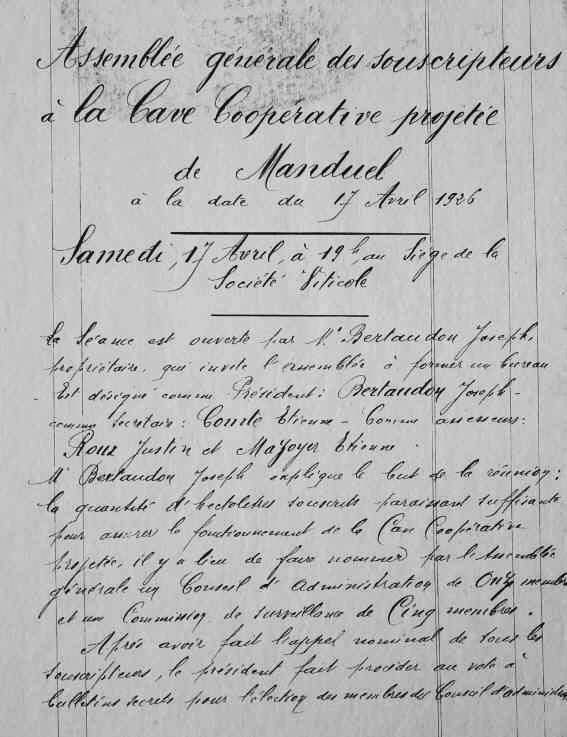 Assemblée générale des souscripteurs
à la Cave Coopérative projetée
de Manduel
à la date du 17 Avril 1926
Samedi, 17 Avril, à 19h, au Siège de la
Société Viticole
La Séance est ouverte par Mr Bertaudon Joseph,
propriétaire, qui invite l'assemblée à former un bureau
Est désigné comme Président : Bertaudon Joseph -
comme secrétaire : Comte Etienne - Comme assesseurs :
Roux Justin et Majoyer Etienne.
Mr Bertaudon Joseph explique le but de la réunion :
la quantité d'hectolitres souscrits paraissant suffisante
pour assurer le fonctionnement de la Cave Coopérative
projetée, il y a lieu de faire nommer par l'Assemblée
générale un Conseil d'administration de Onze membres
et une Commission de surveillance de Cinq membres.
Après avoir fait l'appel nominal de tous les
souscripteurs, le président fait procéder au vote à
bulletins secrets pour l'élection des membres du Conseil d'administ